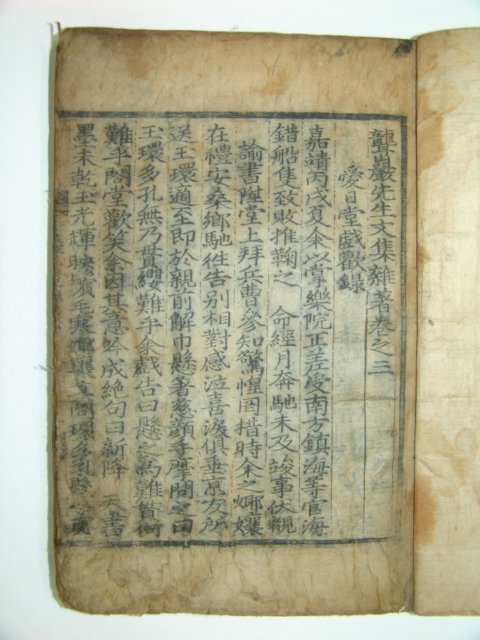 聾巖先生文集雜著卷之三
愛日堂戲歡錄
嘉靖丙戌夏余以掌樂院正差受南方鎭海等官海
錯船隻致敗推鞫之 命經月奔馳未及竣事伏覩
諭書陞堂上拜兵曹參知驚惶罔措時余之爺孃
在禮安桑鄕馳徃告別相對感泣喜淚俱垂京友所
送玉環適至即於親前解巾懸著慈顔手摩問之曰
玉環多孔無乃貫纓難乎余戲告曰懸之爲難貫何
難乎閤堂歡笑余因其意吟成絶句曰新降 天書
墨未乾玉光輝暎